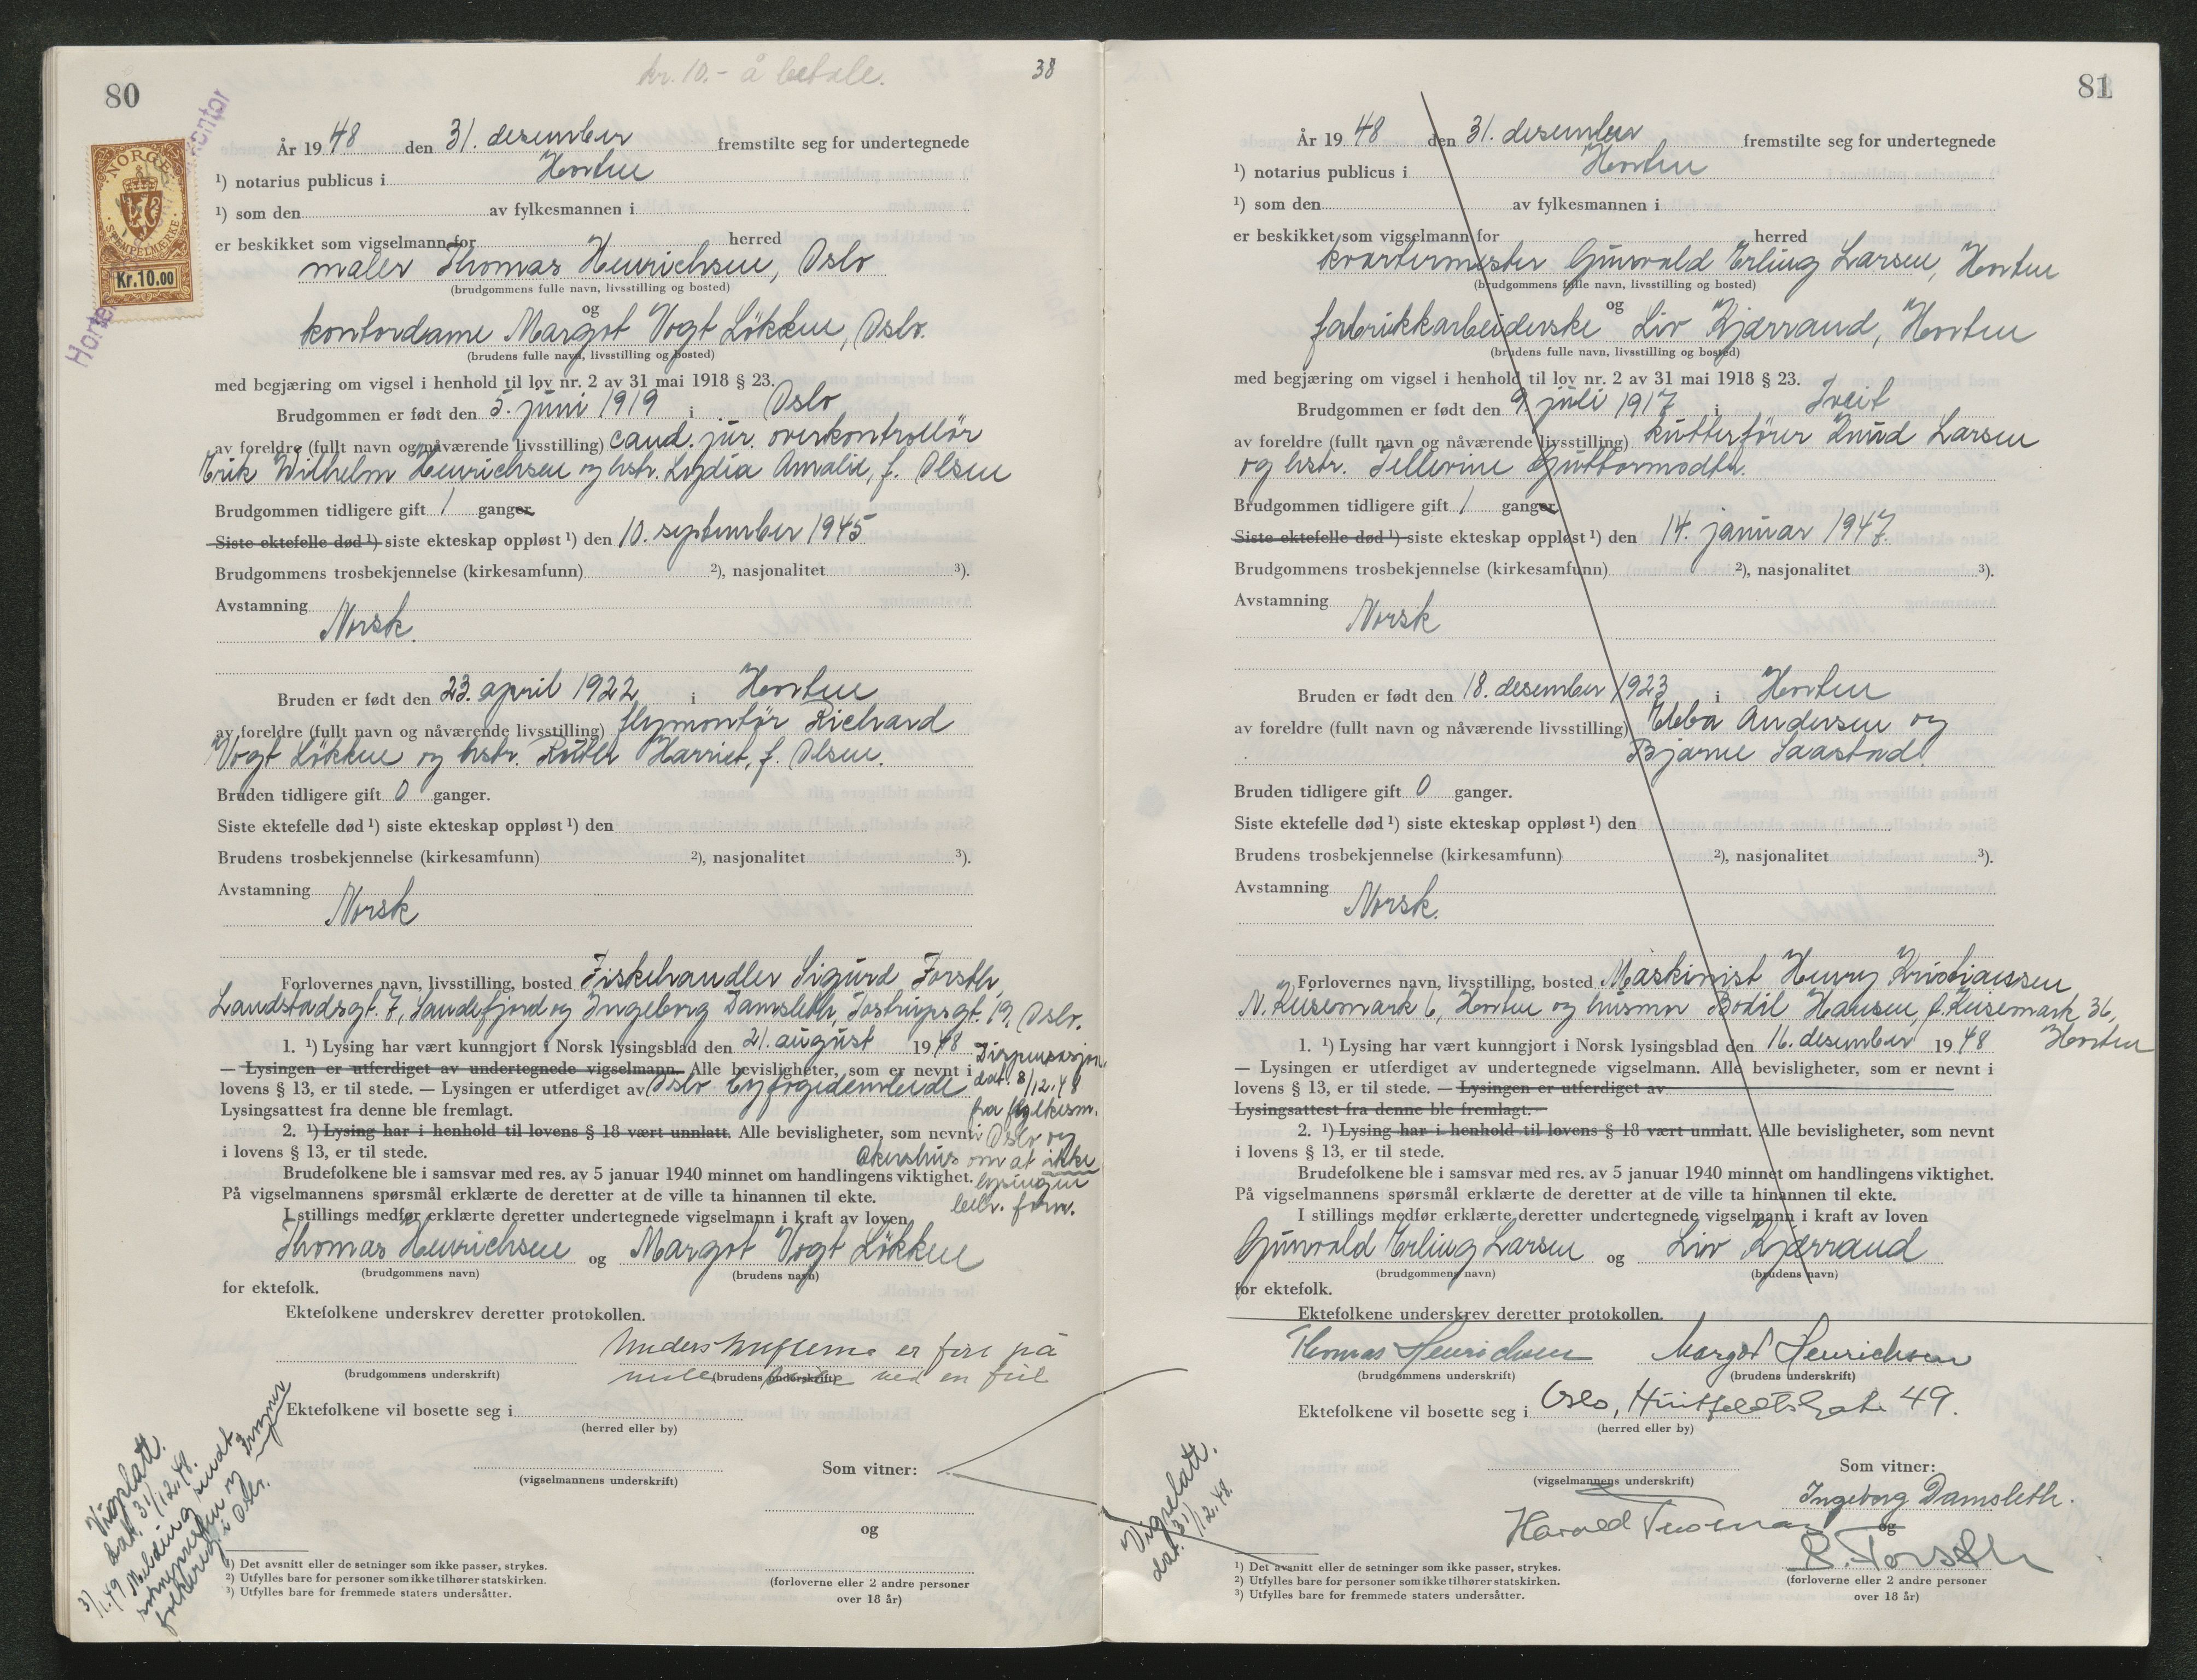 80
kr. 10.- å betale.
38
NORGE
STEMPELMERKE
Kr.10.00
År 1948 den 31. desember fremstilte seg for undertegnede
¹) notarius publicus i Horten
¹) som den av fylkesmannen i
er beskikket som vigselmann for herred
maler Thomas Henrichsen, Oslo
(brudgommens fulle navn, livsstilling og bosted)
og
kontordame Margot Vogt Løkken, Oslo.
(brudens fulle navn, livsstilling og bosted)
med begjæring om vigsel i henhold til lov nr. 2 av 31 mai 1918 § 23.
Brudgommen er født den 5. juni 1919 i Oslo
av foreldre (fullt navn og nåværende livsstilling) cand. jur. overkontrollør
Erik Wilhelm Henrichsen og hstr. Lydia Amalie, f. Olsen
Brudgommen tidligere gift 1 ganger
Siste ektefelle død ¹) siste ekteskap oppløst ¹) den 10. september 1945
Brudgommens trosbekjennelse (kirkesamfunn) ²), nasjonalitet ³).
Avstamning
Norsk.
Bruden er født den 23. april 1922 i Horten
av foreldre (fullt navn og nåværende livsstilling) flymontør Richard
Vogt Løkken og hstr. Ruth Harriet, f. Olsen.
Bruden tidligere gift 0 ganger.
Siste ektefelle død ¹) siste ekteskap oppløst ¹) den
Brudens trosbekjennelse (kirkesamfunn) ²), nasjonalitet ³).
Avstamning
Norsk
Forlovernes navn, livsstilling, bosted Fiskehandler Sigurd Forseth,
Landstadsgt. 7, Sandefjord og Ingeborg Damsleth, Tostrupsgt. 19, Oslo.
1. ¹) Lysing har vært kunngjort i Norsk lysingsblad den 21. august 1948
— Lysingen er utferdiget av undertegnede vigselmann. Alle bevisligheter, som er nevnt i
lovens § 13, er til stede. — Lysingen er utferdiget av Oslo byfogdembede
Lysingsattest fra denne ble fremlagt.
Dispensasjon
dat. 8/12.48
fra fylkesm.
i Oslo og
Akershus om at ikke
lysingen
beh. forn.
2. ¹) Lysing har i henhold til lovens § 18 vært unnlatt. Alle bevisligheter, som nevnt
i lovens § 13, er til stede.
Brudefolkene ble i samsvar med res. av 5 januar 1940 minnet om handlingens viktighet.
På vigselmannens spørsmål erklærte de deretter at de ville ta hinannen til ekte.
I stillings medfør erklærte deretter undertegnede vigselmann i kraft av loven
Thomas Henrichsen og Margot Vogt Løkken
(brudgommens navn) (brudens navn)
for ektefolk.
Ektefolkene underskrev deretter protokollen.
Underskriftene er først på
neste side ved en feil
(brudgommens underskrift) (brudens underskrift)
Ektefolkene vil bosette seg i
(herred eller by)
(vigselmannens underskrift)
Som vitner:
og
(forloverne eller 2 andre personer
over 18 år)
Vigselatt.
dat. 31/12.48.
3/1.49 Melding sendt
sognepresten og Frogner
folkereg. i Oslo.
¹) Det avsnitt eller de setninger som ikke passer, strykes.
²) Utfylles bare for personer som ikke tilhører statskirken.
³) Utfylles bare for fremmede staters undersåtter.
81
År 1948 den 31. desember fremstilte seg for undertegnede
¹) notarius publicus i Horten
¹) som den av fylkesmannen i
er beskikket som vigselmann for herred
kvartermester Gunvald Erling Larsen, Horten
(brudgommens fulle navn, livsstilling og bosted)
og
fabrikkarbeiderske Liv Kjærrand, Horten
(brudens fulle navn, livsstilling og bosted)
med begjæring om vigsel i henhold til lov nr. 2 av 31 mai 1918 § 23.
Brudgommen er født den 9. juli 1917 i Tveit
av foreldre (fullt navn og nåværende livsstilling) kutterfører Knud Larsen
og hstr. Tellevine Guttormsdtr.
Brudgommen tidligere gift 1 ganger
Siste ektefelle død ¹) siste ekteskap oppløst ¹) den 14. januar 1947.
Brudgommens trosbekjennelse (kirkesamfunn) ²), nasjonalitet ³).
Avstamning
Norsk
Bruden er født den 18. desember 1923 i Horten
av foreldre (fullt navn og nåværende livsstilling) Ebba Andersen og
Bjarne Saastad.
Bruden tidligere gift 0 ganger.
Siste ektefelle død ¹) siste ekteskap oppløst ¹) den
Brudens trosbekjennelse (kirkesamfunn) ²), nasjonalitet ³).
Avstamning
Norsk.
Forlovernes navn, livsstilling, bosted Maskinist Henry Kristiansen
N. Keisemark 6, Horten og husmor Bodil Hansen, f. Keisemark 36,
Horten
1. ¹) Lysing har vært kunngjort i Norsk lysingsblad den 16. desember 1948
— Lysingen er utferdiget av undertegnede vigselmann. Alle bevisligheter, som er nevnt i
lovens § 13, er til stede. — Lysingen er utferdiget av
Lysingsattest fra denne ble fremlagt.
2. ¹) Lysing har i henhold til lovens § 18 vært unnlatt. Alle bevisligheter, som nevnt
i lovens § 13, er til stede.
Brudefolkene ble i samsvar med res. av 5 januar 1940 minnet om handlingens viktighet.
På vigselmannens spørsmål erklærte de deretter at de ville ta hinannen til ekte.
I stillings medfør erklærte deretter undertegnede vigselmann i kraft av loven
Gunvald Erling Larsen og Liv Kjærrand
(brudgommens navn) (brudens navn)
for ektefolk.
Ektefolkene underskrev deretter protokollen.
Thomas Henrichsen Margot Henrichsen
(brudgommens underskrift) (brudens underskrift)
Ektefolkene vil bosette seg i Oslo, Huitfeldtsgate 49.
(herred eller by)
(vigselmannens underskrift)
Harald
Som vitner:
Ingeborg Damsleth.
og
S. Forseth
(forloverne eller 2 andre personer
over 18 år)
Vigselatt.
dat. 31/12.48.
¹) Det avsnitt eller de setninger som ikke passer, strykes.
²) Utfylles bare for personer som ikke tilhører statskirken.
³) Utfylles bare for fremmede staters undersåtter.